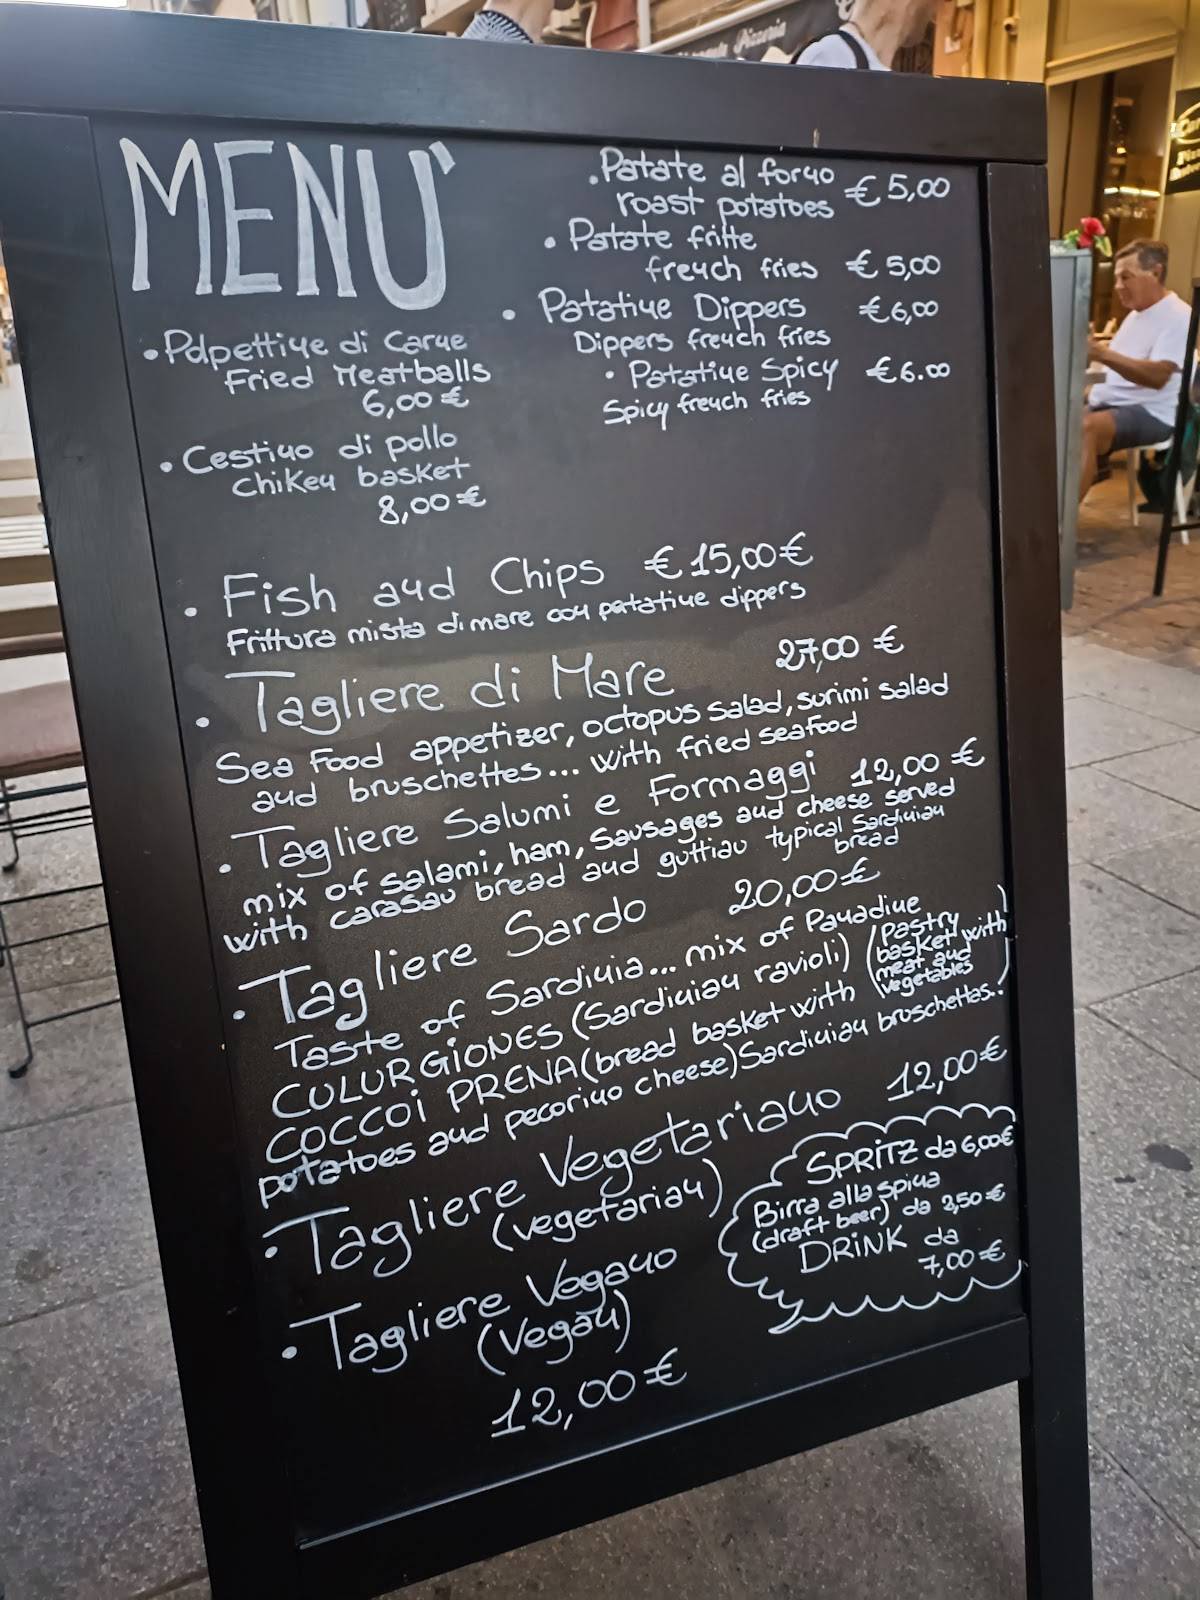 MENU'
• Polpettine di Carne
Fried Meatballs
6,00 €
• Cestino di pollo
chiKen basket
8,00 €
• Patate al forno
roast potatoes € 5,00
• Patate fritte
french fries € 5,00
• Patatine Dippers € 6,00
Dippers french fries
• Patatine Spicy € 6.00
Spicy french fries
• Fish and Chips € 15,00 €
Frittura mista di mare con patatine dippers
• Tagliere di Mare 27,00 €
Sea Food appetizer, octopus salad, surimi salad
and bruschettes... with fried seafood
• Tagliere Salumi e Formaggi 12,00 €
mix of salami, ham, Sausages and cheese served
with carasau bread and guttiau typical Sardinian
bread
• Tagliere Sardo 20,00 €
Taste of Sardinia... mix of Panadine (Pastry
basket with
meat and
vegetables)
CULURGiONES (Sardinian ravioli)
COCCOi PRENA (bread basket with
potatoes and pecorino cheese) Sardinian bruschettas..!
• Tagliere Vegetariano 12,00 €
(vegetarian)
• Tagliere Vegano
(Vegan)
12,00 €
SPRiTZ da 6,00 €
Birra alla spina
(draft beer) da 2,50 €
DRiNK da
7,00 €